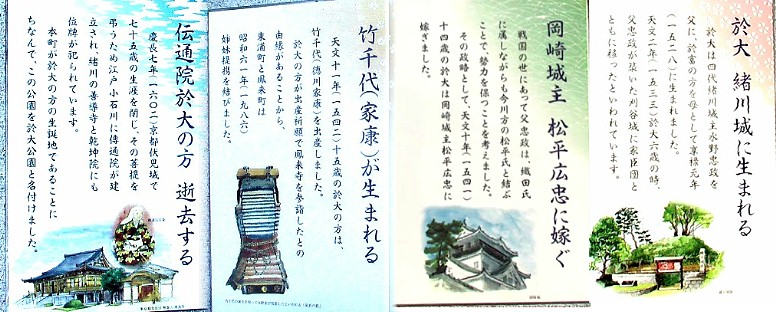 於大 緒川城に生まれる
於大は四代緒川城主水野忠政を
父に、於富の方を母として享禄元年
（一五二八）に生まれました。
天文二年（一五三三）於大六歳の時、
父忠政が築いた刈谷城に家臣団と
ともに移ったといわれています。
岡崎城主 松平広忠に嫁ぐ
戦国の世にあって父忠政は、織田氏
に属しながらも今川方の松平氏と結ぶ
ことで、勢力を保つことを考えました。
その政略として、天文十年（一五四一）
十四歳の於大は岡崎城主松平広忠に
嫁ぎました。
竹千代（家康）が生まれる
天文十一年（一五四二）十五歳の於大の方は、
竹千代（徳川家康）を出産しました。
於大の方が出産祈願で鳳来寺を参詣したとの
由縁があることから、
東浦町と鳳来町は
昭和六一年（一九八六）
姉妹提携を結びました。
伝通院於大の方 逝去する
慶長七年（一六〇二）京都伏見城で
七十五歳の生涯を閉じ、その菩提を
弔うため江戸小石川に伝通院が建
立され、緒川の善導寺と乾坤院にも
位牌が祀られています。
本町が於大の方の生誕地であることに
ちなんで、この公園を於大公園と名付けました。